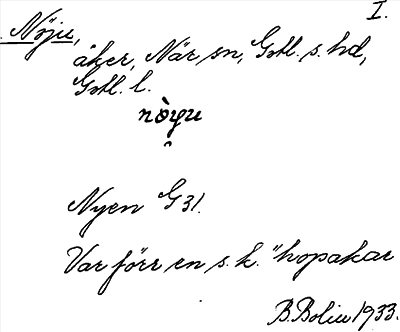 I.
Nöju,
åker, När sn, Gotl. s. hd,
Gotl. l.
nòyu
Nyen G 31.
Var förr en s.k. "hopakar
B. Bolin 1933.